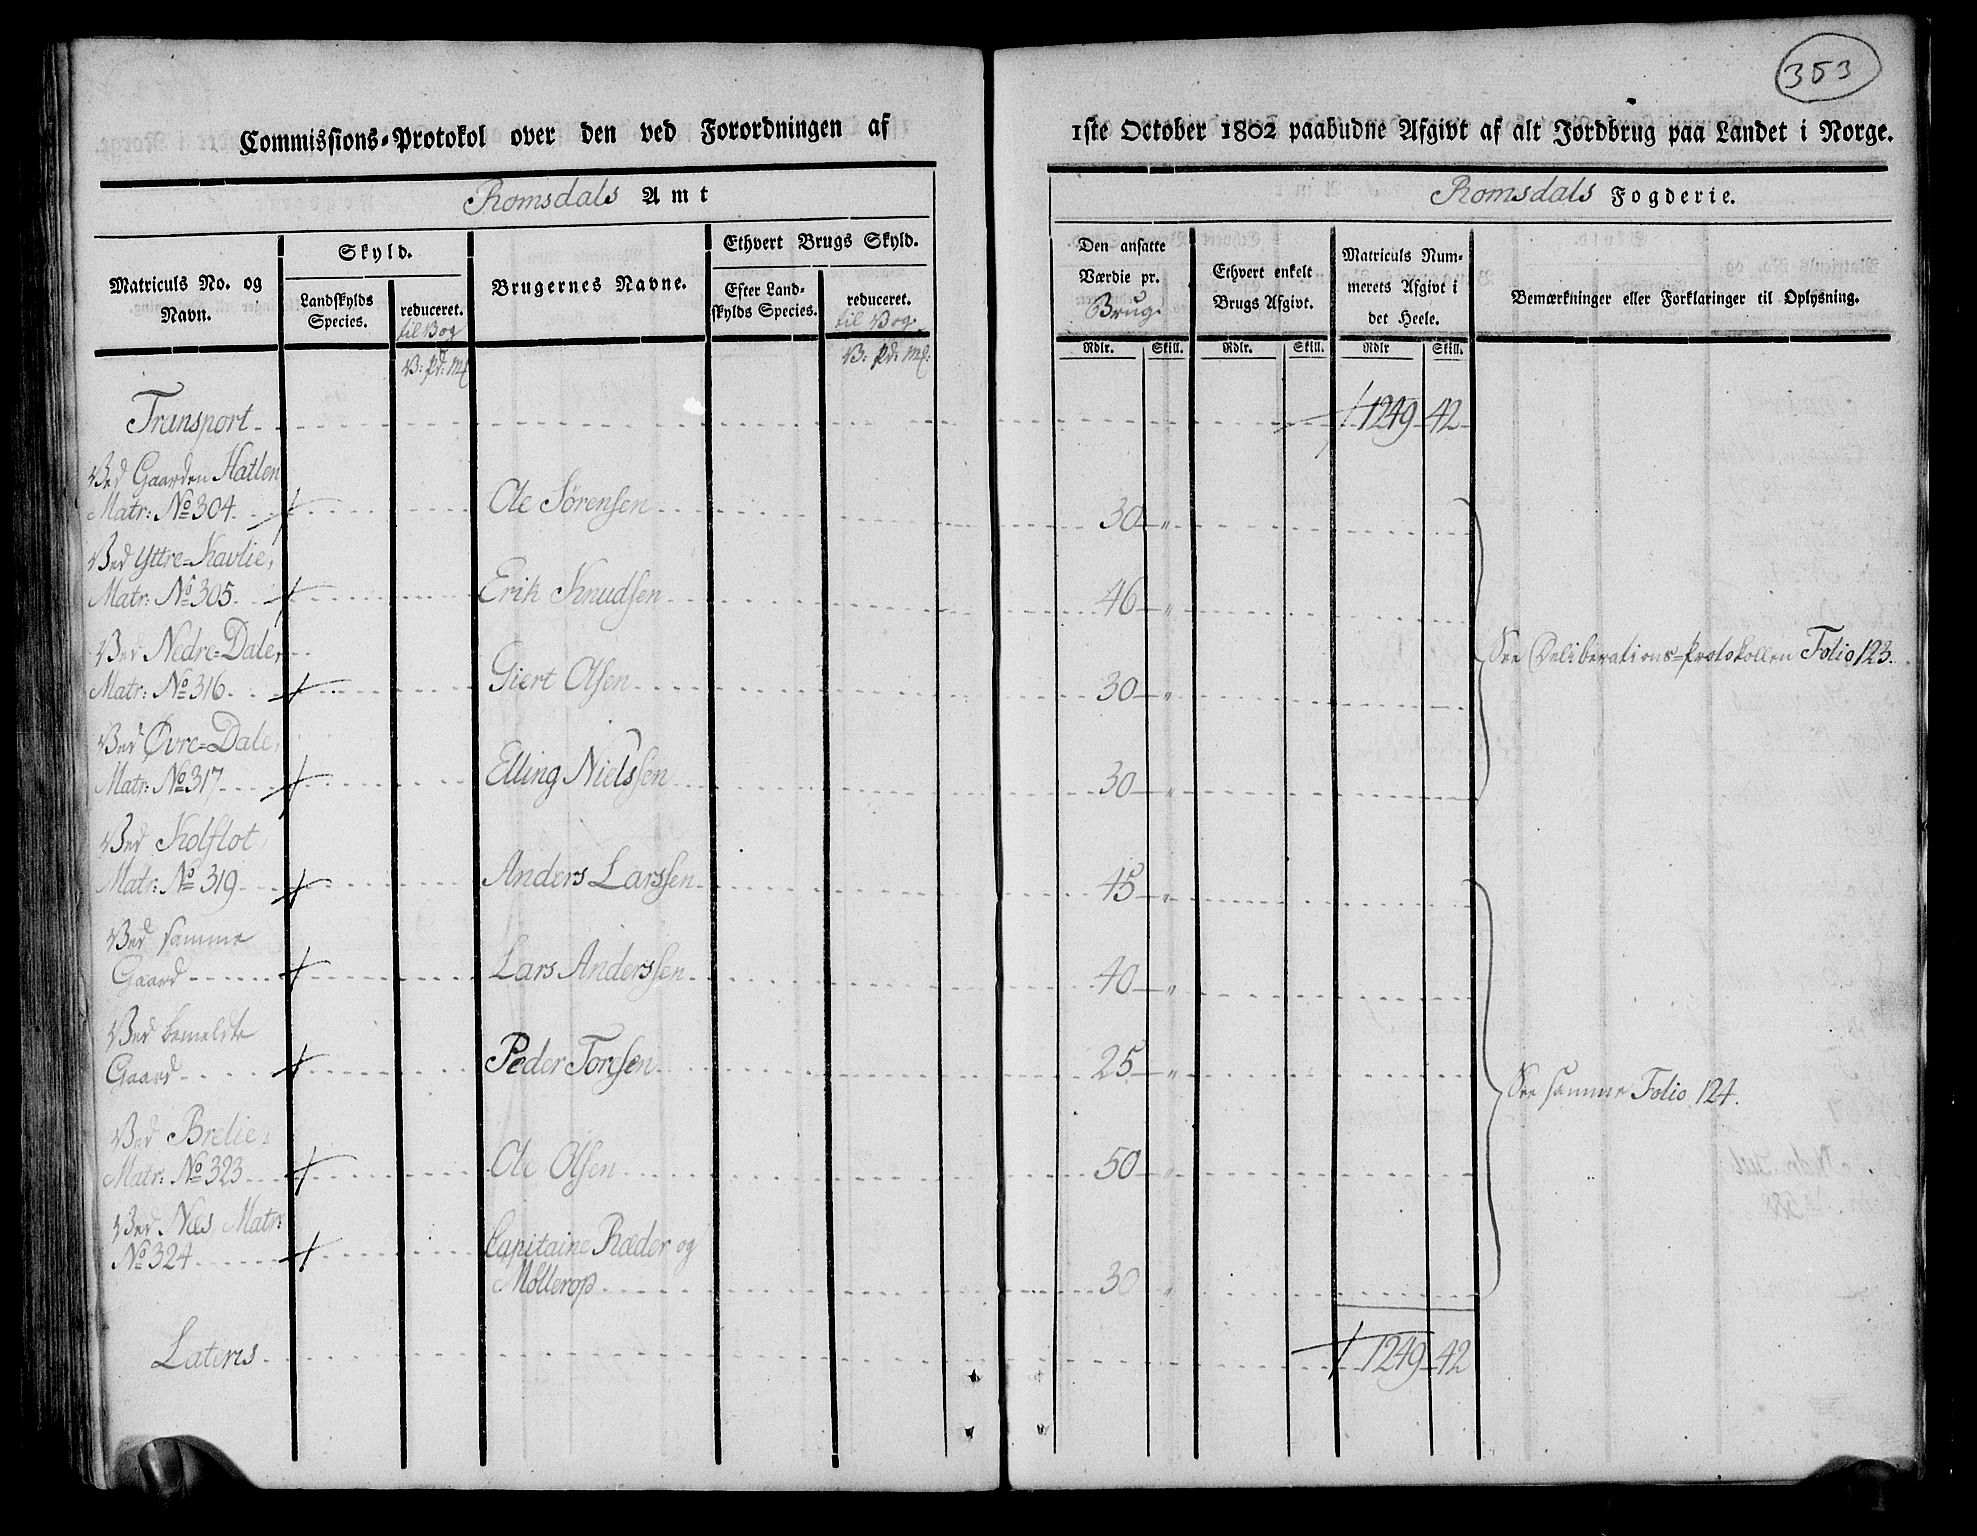 353
Commissions-Protokol over den ved Forordningen af 1ste October 1802 paabudne Afgivt af alt Jordbrug paa Landet i Norge.
Romsdals Amt
Romsdals Fogderie.
Matriculs No. og Navn.
Skyld.
Landskylds Species.
reduceret.
til Vog
V: pd: Mk
Brugernes Navne.
Ethvert Brugs Skyld.
Efter Landskylds Species.
reduceret.
til Vog.
V: pd: Mk:
Den ansatte Værdie pr.
Brug.
Rdlr. Skill.
Ethvert enkelt Brugs Afgivt.
Rdlr. Skill.
Matriculs Nummerets Afgivt i det Heele.
Rdlr Skill.
Bemærkninger eller Forklaringer til Oplysning.
Transport 1249 42
Ved Gaarden Hatlen
Matr: No 304 Ole Sørensen 30 — "
Ved Yttre-Kavlie,
Matr: No 305 Erik Knudsen 46 — "
Ved Nedre-Dale,
Matr: No 316 Giert Olsen 30 — "
See Deliberations-Protokollen Folio 123.
Ved Øvre-Dale,
Matr: No 317 Elling Nielssen 30 — "
Ved Kolflot,
Matr: No 319 Anders Larssen 45 — "
Ved samme
Gaard Lars Anderssen 40 — "
Ved bemeldte
Gaard Peder Toresen 25 — "
See samme Folio 124.
Ved Brelie,
Matr: No 323 Ole Olsen 50 — "
Ved Næs, Matr:
No 324 Capitaine Ræder og
Møllerop 30 "
Lateris 1249 42